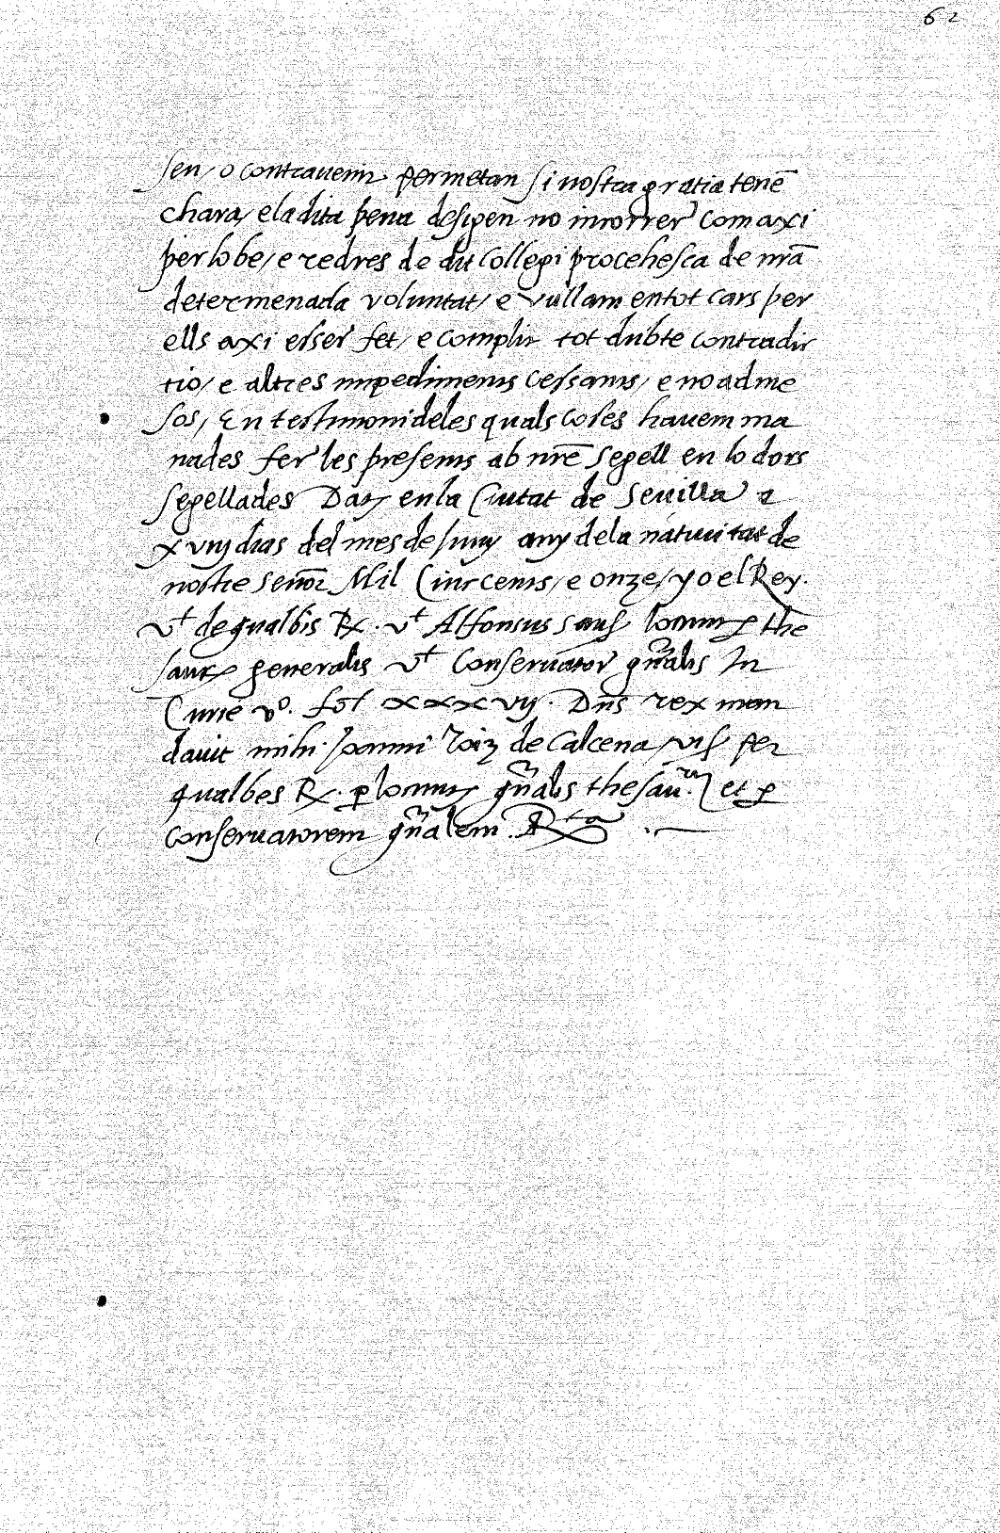 62
sen, o contrauenir permetan si nostra gratia tenē
chara, e la dita pena desigen no incorrer com axi
per lo be, e redres de dit Collegi procehesca de nrā
determenada voluntat, e vullam en tot cars per
ells axi esser fet, e complir tot dubte contradic
tio, e altres impediments cessants, e no adme
sos, En testimoni de les quals coses havem ma
nades fer les presents ab nrē segell en lo dors
segellades Dat en la Ciutat de Seuilla a
xviij dias del mes de Juny any de la natiuitat de
nostre senōr Mil Cinc cents, e onze, yo el Rey.
vt de gualbis Rx. vt Alfonsus sanς locumt the
saur generalis vt Conseruator gn̄alis In
Curie vo. fol xxxvij. Dn̄s rex man
dauit mihi Joanni Roiz de Calcena, vis per
qualbes Rx. locumt gn̄alis thesau. et p
conseruatorem gn̄alem. Rta